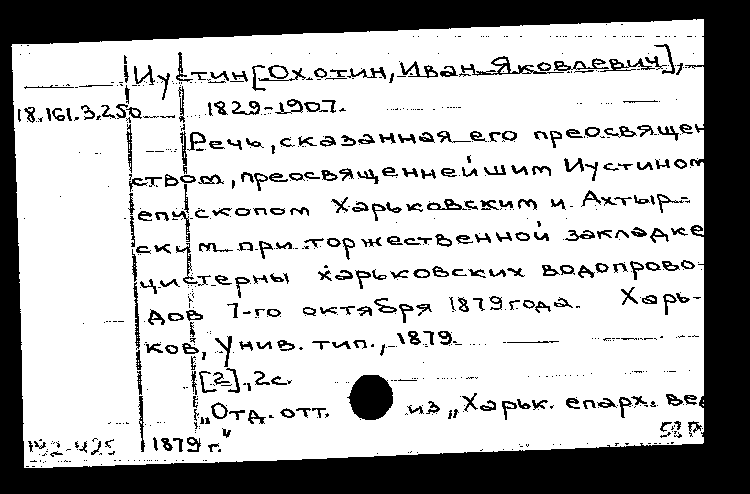 Иустин [Охотин, Иван Яковлевич],
18.161.3.250 1829-1907.
Речь, сказанная его преосвящен
ством, преосвященнейшим Иустином
епископом Харьковским и Ахтыр-
ским при торжественной закладке
цистерны харьковских водопрово-
дов 7-го октября 1879 года. Харь-
ков, Унив. тип., 1879.
[2], 2 с.
„Отд. отт. из „Харьк. епарх. вед
1879 г."